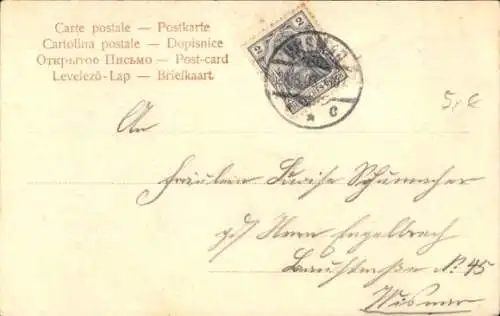 Carte postale — Postkarte
Cartolina postale — Dopisnice
Открытое Письмо — Post-card
Levelező-Lap — Briefkaart
2 2
5,- €
An
Fräulein Luise Schumacher
p/ Herrn Engelbrecht
No. 45
Wismar